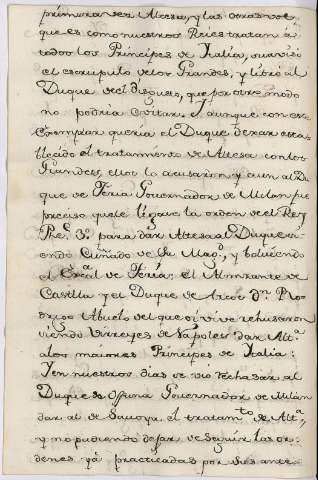 primera vez Alteza, y las otras vos
que es como nuestros Reies tratan à
todos los Príncipes de Italia, suavizò
el escrupulo de los Grandes, y librò al
Duque de el disgusto, que por otro modo
no podria evitar. Y aunque con este
exemplar queria el Duque dexar esta-
blecido el tratamiento de Alteza con los
Grandes, ellos la acusaron, y aun al Du-
que de Feria Governador de Milan fue
preciso que le llegave la orden de el Rey
Phe. 3º para dar Alteza al Duque si-
endo Cuñado de Su Magd, y bolviendo
el Exal de Feria; el Almirante de
Castilla y el Duque de Arcos Dn Ro-
drigo Abuelo del que oi vive rehusaron
siendo Virreyes de Napoles dar Alta
a los maiores Principes de Italia:
Y en nuestros dias se vio rechasar al
Duque de Ossuna Governador de Milan
dar al de Saboya el tratamto de Alta,
y no pudiendo dejar de seguir las or-
denes yà practicadas por sus ante-